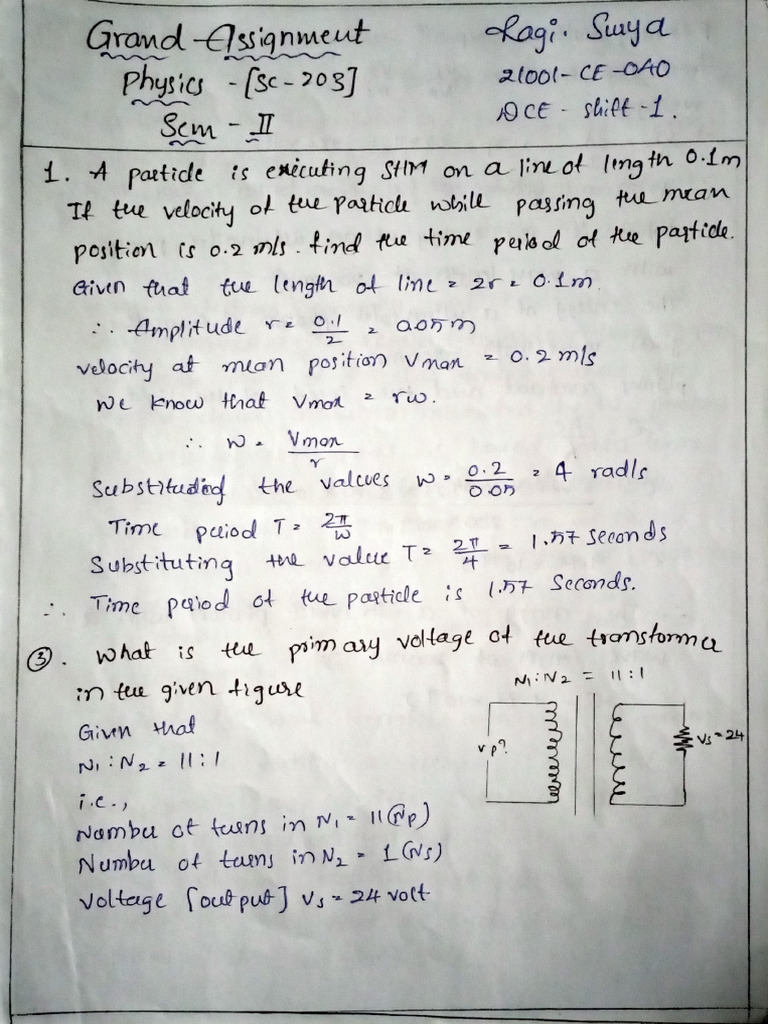 Grand-Assignment
Physics -[SC-203]
Sem - II
Ragi. Surya
21001-CE-040
DCE - shift -1.
1. A particle is executing SHM on a line of length 0.1m
If the velocity of the particle while passing the mean
position is 0.2 m/s. find the time period of the particle.
Given that the length of line = 2r = 0.1m.
∴ Amplitude r = 0.1/2 = 0.05m
velocity at mean position Vmax = 0.2 m/s
We know that Vmax = rw.
∴ w = Vmax/r
Substituting the values w = 0.2/0.05 = 4 rad/s
Time period T = 2π/w
Substituting the value T = 2π/4 = 1.57 seconds
∴ Time period of the particle is 1.57 seconds.
3. What is the primary voltage of the transformer
in the given figure
N1:N2 = 11:1
Vp?
Vs=24
Given that
N1:N2 = 11:1
i.e.,
Number of turns in N1 = 11(Np)
Number of turns in N2 = 1(Ns)
Voltage [output] Vs = 24 volt